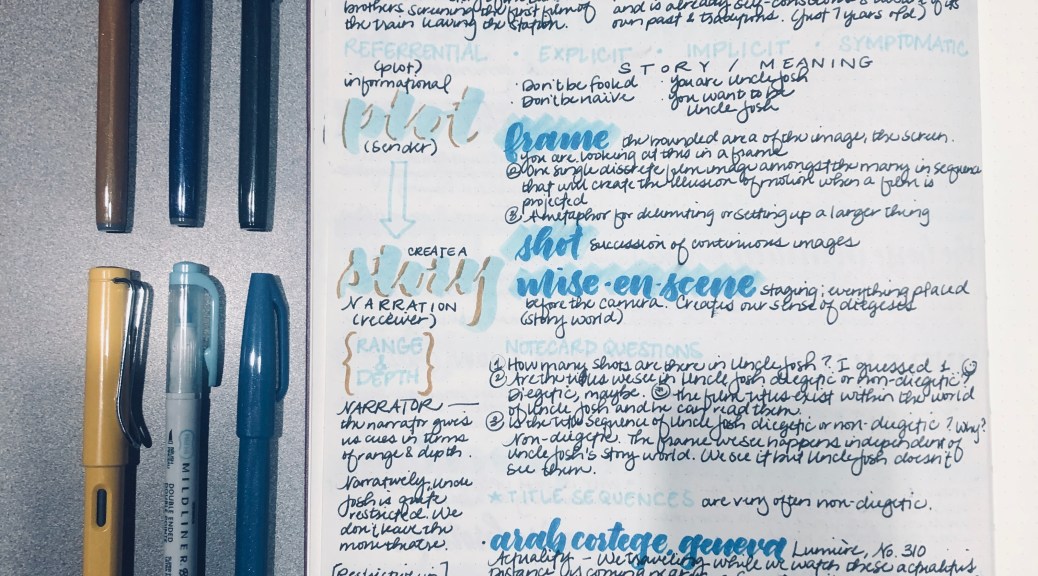 brothers screening the first film of
the train leaving the station.
and is already self-conscious
own past & traditions. (just 7 years old)
REFERRENTIAL · EXPLICIT · IMPLICIT · SYMPTOMATIC
(plot?)
informational
STORY / MEANING
· Don't be fooled
· Don't be naive
· you are Uncle Josh
· you want to be
Uncle Josh
plot
(sender)
CREATE A
story
NARRATION
(receiver)
{RANGE
&
DEPTH}
NARRATOR —
the narrator gives
us cues in terms
of range & depth.
Narratively, Uncle
Josh is quite
restricted. We
don't leave the
movie theatre.
[Restrictive
frame the bounded area of the image, the screen.
you are looking at this in a frame
② One single discrete film image amongst the many in sequence
that will create the illusion of motion when a film is
projected
③ A metaphor for delimiting or setting up a larger thing
shot succession of continuous images
mise·en·scene staging; everything placed
before the camera. Creates our sense of diegesis
(story world)
NOTECARD QUESTIONS
① How many shots are there in Uncle Josh? I guessed 1.
② Are the titles we see in Uncle Josh diegetic or non-diegetic?
Diegetic, maybe. the film titles exist within the world
of Uncle Josh and he can read them.
③ Is the title sequence of Uncle Josh diegetic or non-diegetic? Why?
Non-diegetic. The frame we see happens independent of
Uncle Josh's story world. We see it but Uncle Josh doesn't
see them.
★ TITLE SEQUENCES are very often non-diegetic.
· arab cortege, geneva Lumière, No. 310
Actuality — We traveling while we watch these actualités
Distance is coming near
MILDLINER
DOUBLE ENDED